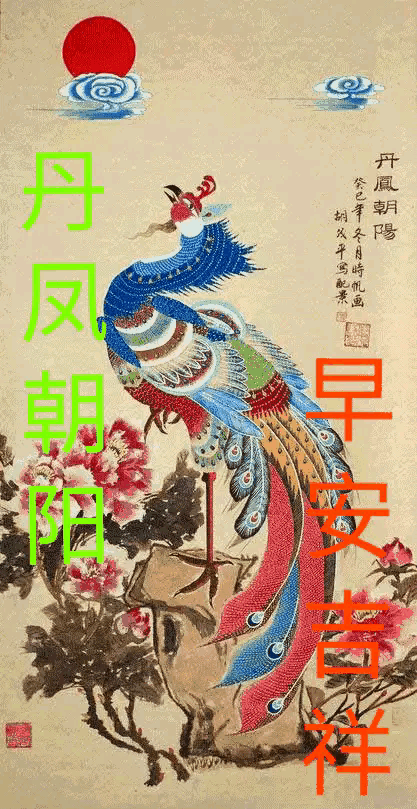 丹鳳朝陽
癸巳年冬月時帆画
胡文平寫配景
丹凤朝阳
早安吉祥